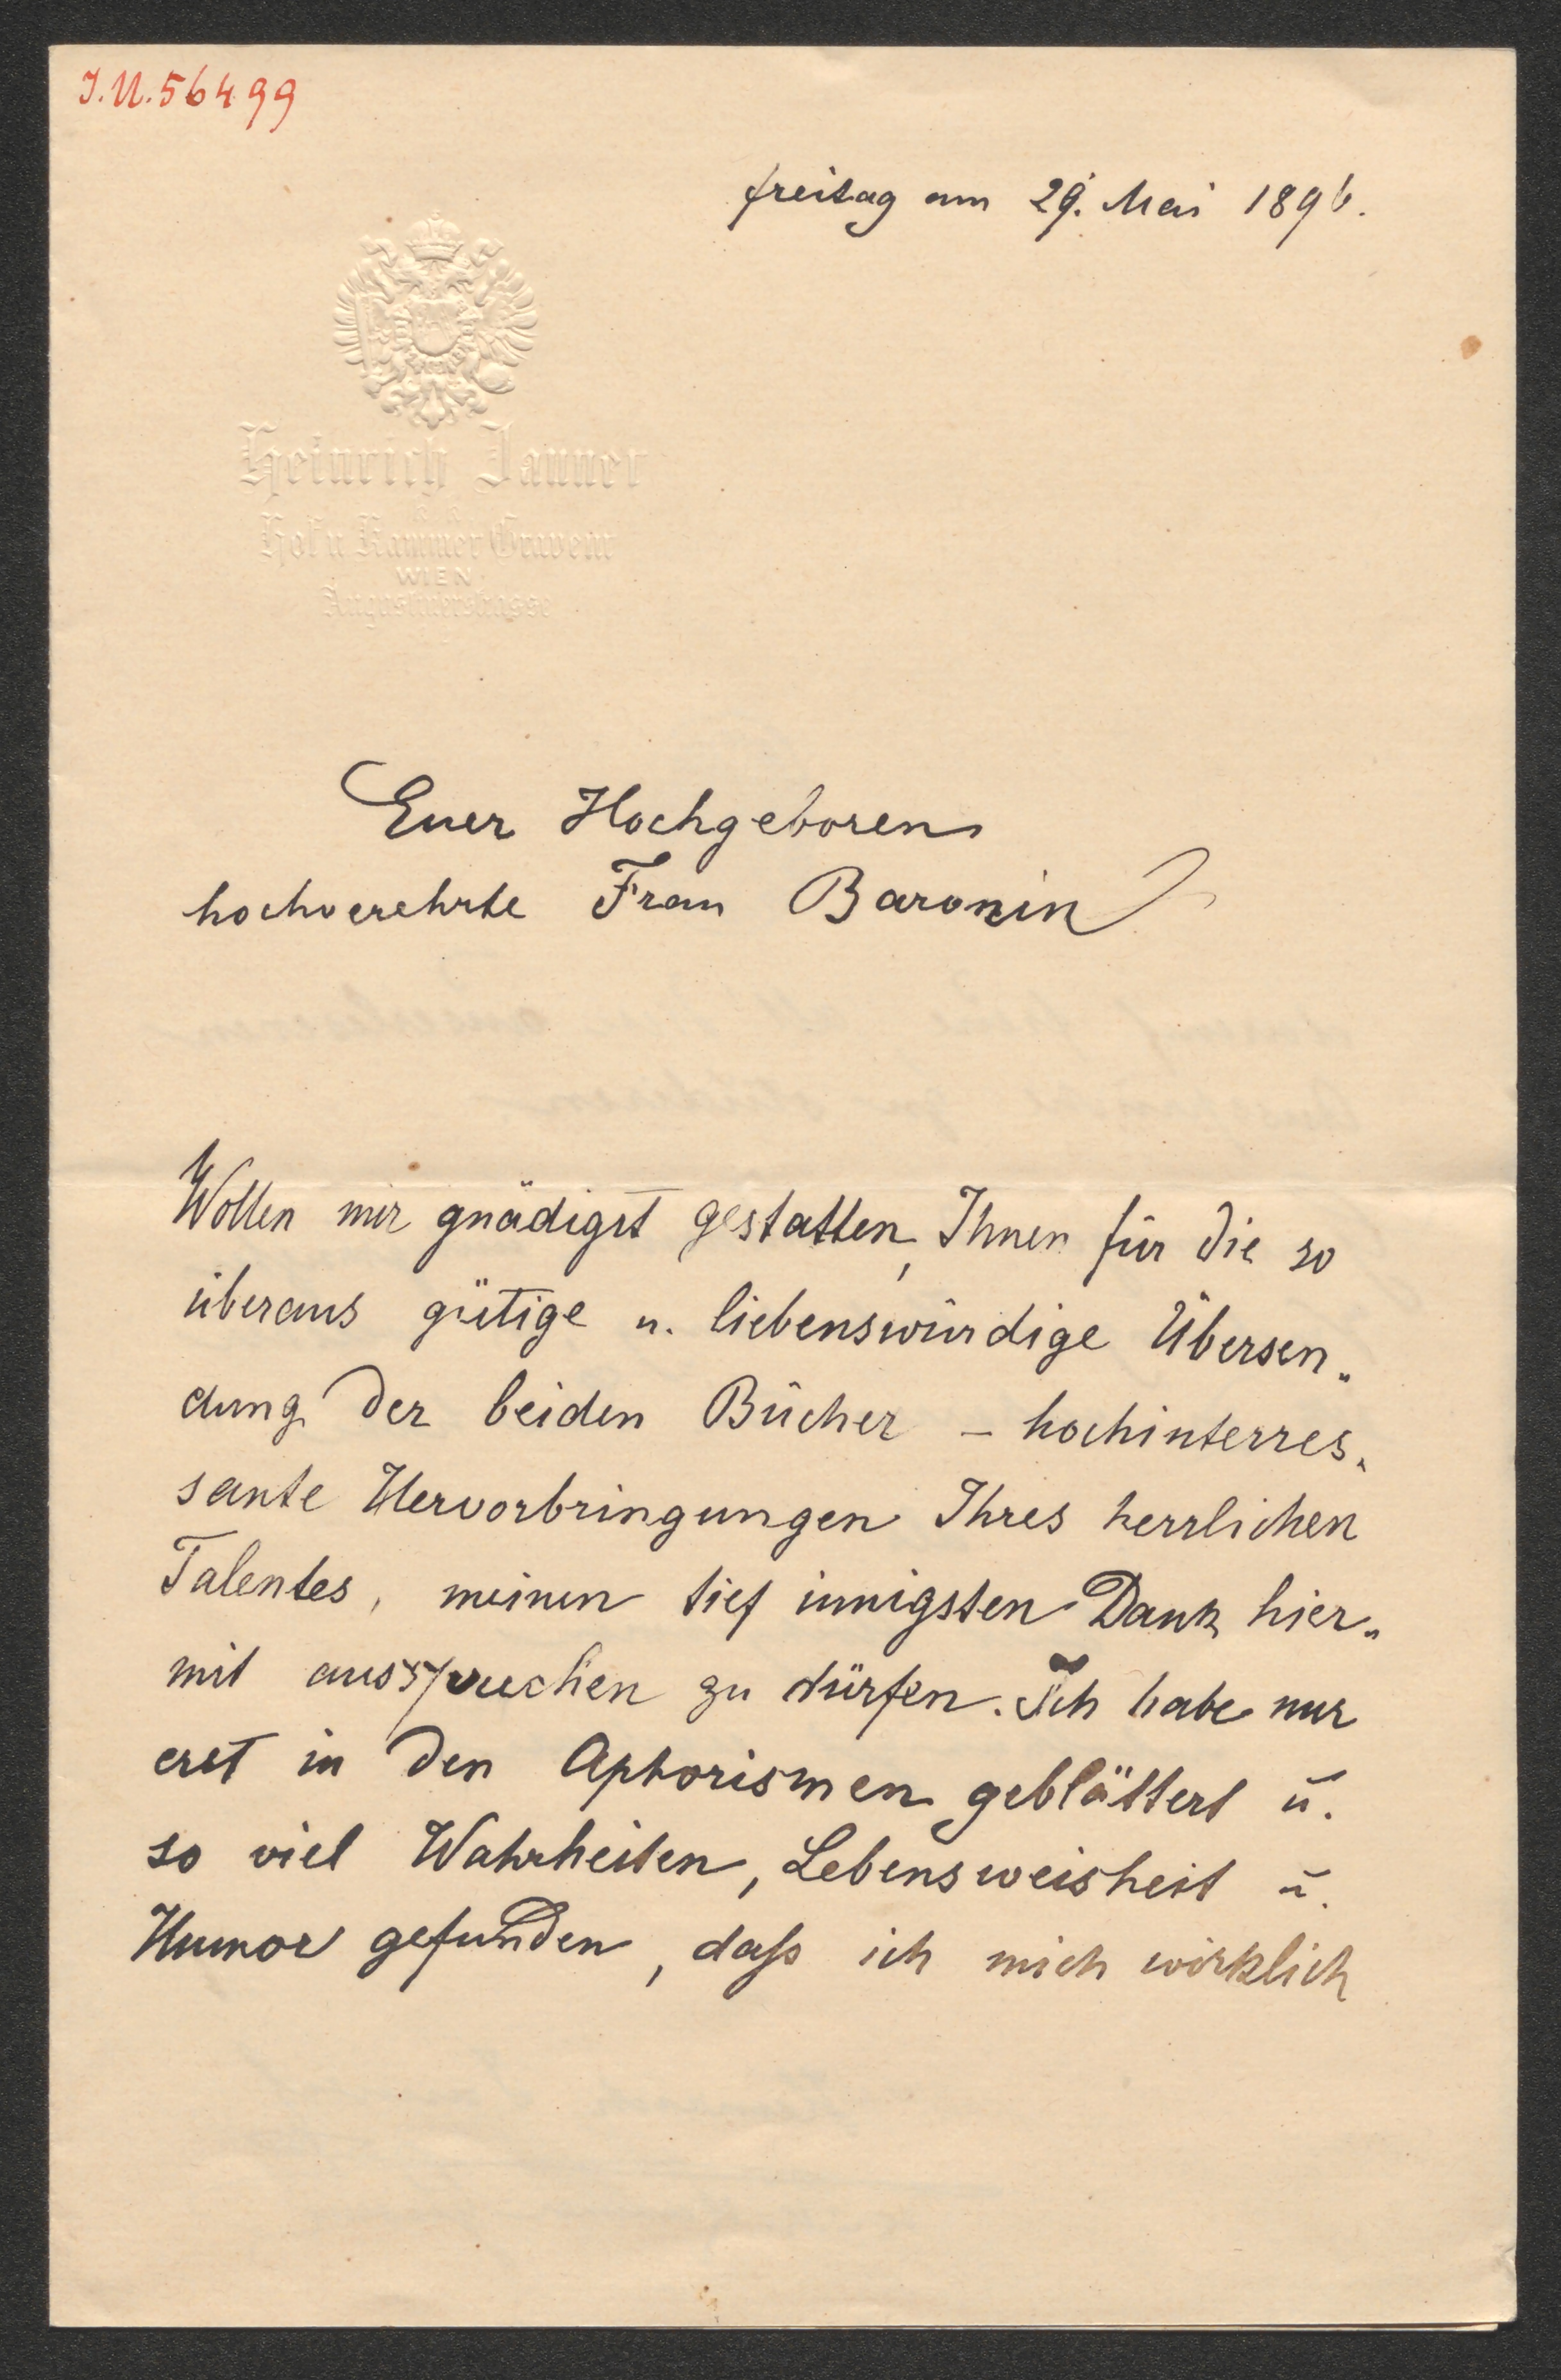 J.N. 56499
freitag am 29. Mai 1896.
Heinrich Jauner
k. k.
Hof u. Kammer Graveur
WIEN
Augustinerstrasse
Euer Hochgeboren
hochverehrte Frau Baronin
Wollen mir gnädigst gestatten, Ihnen für die so
überaus gütige u. liebenswürdige Übersen„
dung der beiden Bücher – hochinterres„
sante Hervorbringungen Ihres herrlichen
Talentes, meinen tief innigsten Dank hier„
mit aussprechen zu dürfen. Ich habe nur
erst in den Aphorismen geblättert u.
so viel Wahrheiten, Lebensweisheit u.
Humor gefunden, daß ich mich wirklich